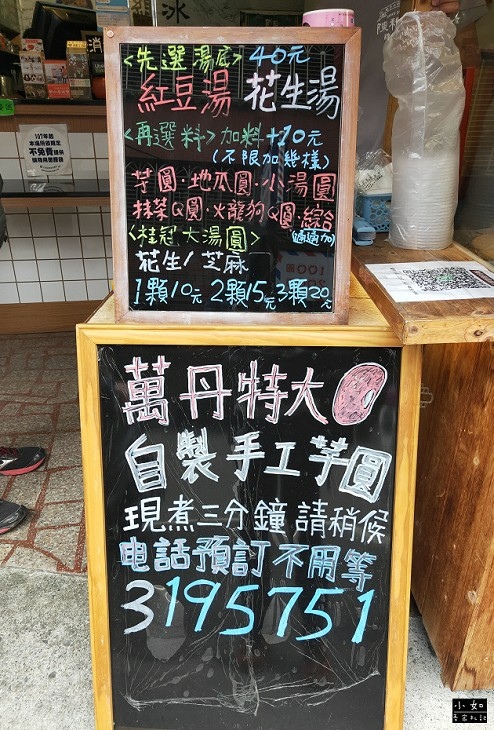 冰
<先選湯底> 40元
紅豆湯 花生湯
<再選料> 加料+10元
(不限加幾樣)
芋圓·地瓜圓·小湯圓
抹茶Q圓·火龍狗Q圓·綜合
(通通加)
<桂冠大湯圓>
花生/芝麻
1顆10元 2顆15元 3顆20元
不免費提供
萬丹特大
自製手工芋圓
現煮三分鐘 請稍候
电話預訂不用等
3195751
小如